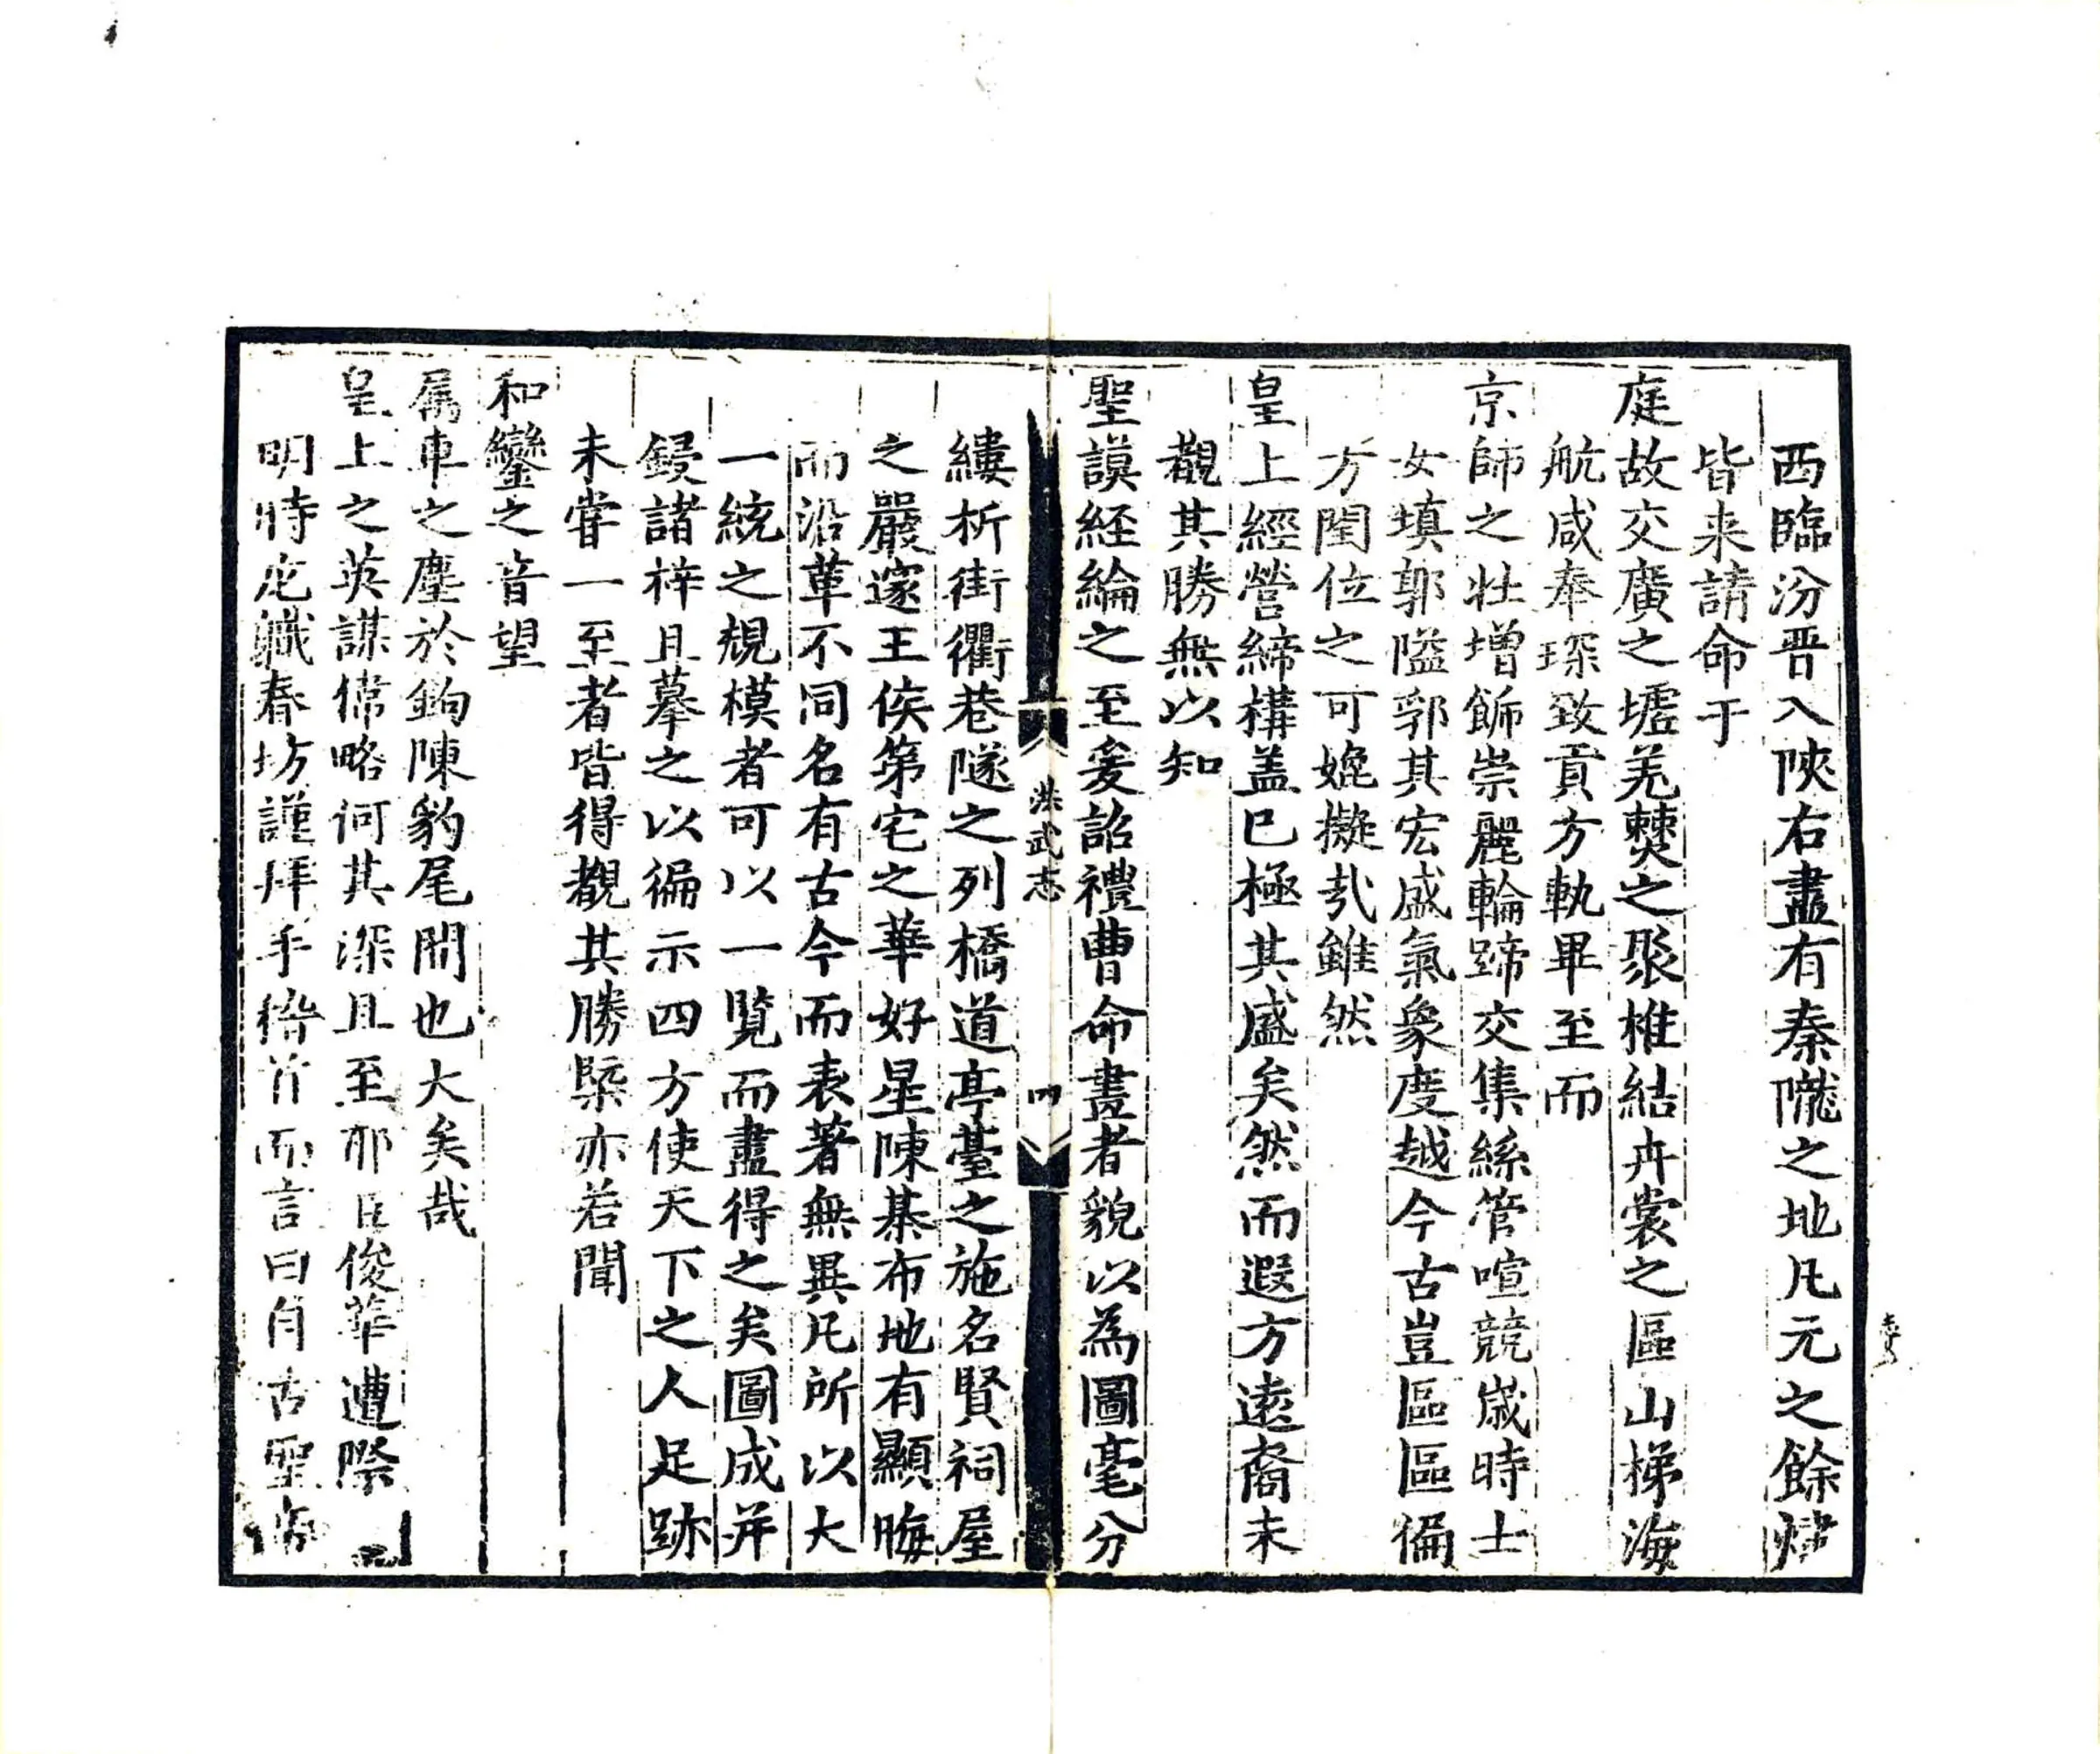 西臨汾晋入陝右盡有秦隴之地凡元之餘燼
皆来請命于
庭故交廣之墟羌僰之聚椎結卉裳之區山梯海
航咸奉琛致貢方軌畢至而
京師之壮增飾崇麗輪蹄交集絲管喧競歲時士
女填郭隘郛其宏盛氣象度越今古豈區區偏
方閏位之可娩擬㢤雖然
皇上經營締構盖已極其盛矣然而遐方逺裔未
覩其勝無以知
聖謨経綸之至爰詔禮曹命畫者貌以為圖毫分
洪武志
四
縷析街衢巷隧之列橋道亭䑓之施名賢祠屋
之嚴邃王侯第宅之華好星陳棊布地有顯晦
而沿革不同名有古今而表著無異凡所以大
一統之規模者可以一覧而盡得之矣圖成并
鋟諸梓且摹之以徧示四方使天下之人足跡
未甞一至者皆得覩其勝槩亦若聞
和鑾之音望
属車之塵於鉤陳豹尾間也大矣哉
皇上之英謀偉略何其深且至邪臣俊華遭際
明時庀職春坊謹拜手稽首而言曰自古聖帝